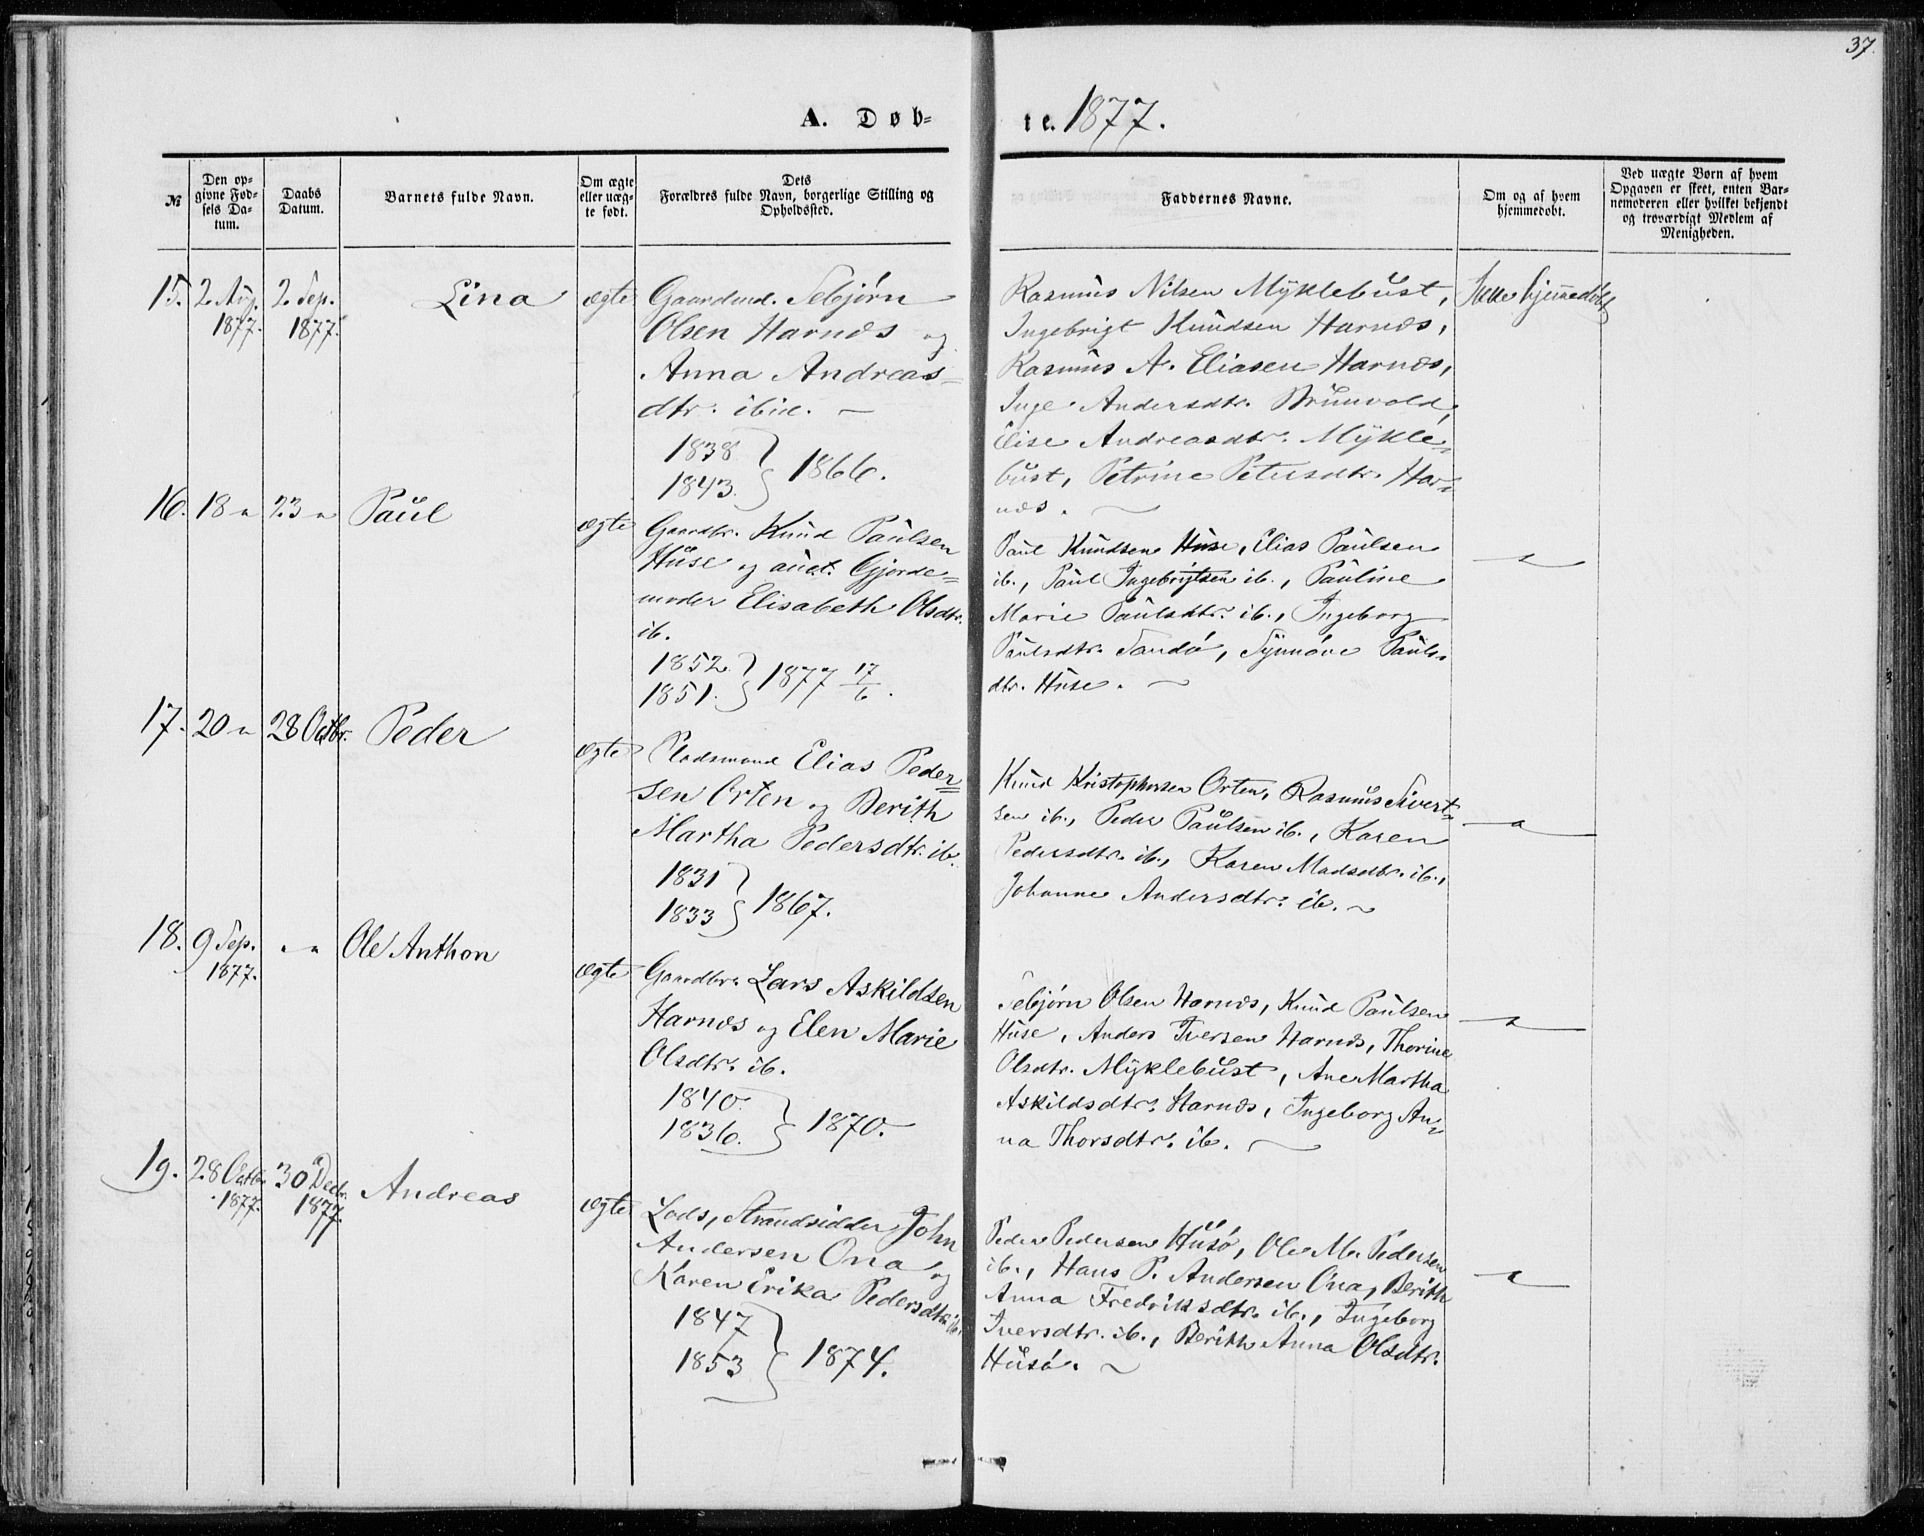 37.
A. Døb-
te. 1877.
№
Den op-
givne Fød-
sels Da-
tum.
Daabs
Datum.
Barnets fulde Navn.
Om ægte
eller uæg-
te født.
Dets
Forældres fulde Navn, borgerlige Stilling og
Opholdssted.
Faddernes Navne.
Om og af hvem
hjemmedøbt.
Ved uægte Børn af hvem
Opgaven er skeet, enten Bar-
nemoderen eller hvilket bekjendt
og troværdigt Medlem af
Menigheden.
15. 2 Aug. 1877. 2. Sep. 1877. Lina ægte
Gaardmd. Tebjørn
Olsen Harnæs og
Anna Andreas=
dtr. ibid. —
1838 } 1866.
1843.
Rasmus Nilsen Myklebust,
Ingebrigt Knudsen Harnæs,
Rasmus A. Eliasen Harnæs,
Inge Andersdtr. Brunvold,
Elise Andreasdtr. Mykle=
bust, Petrine Petersdtr. Har=
næs. —
Ikke hjemmedøbt
16. 18 " 23 " Paul ægte
Gaardbr. Knud Paulsen
Huse og Gjorde=
moder Elisabeth Olsdtr.
ib.
1852. } 1877 17/6.
1851.
Paul Knudsen Huse, Elias Paulsen
ib., Paul Ingebrigtsen ib., Pauline
Marie Paulsdtr. ib., Ingeborg
Paulsdtr. Sandø, Synnøve Pauls-
dtr. Huse. —
— " —
17. 20 " 28 Octbr. Peder ægte
Pladsmand Elias Peder=
sen Orten og Berith
Martha Pedersdtr. ib.
1831 } 1867.
1833
Knud Kristophersen Orten, Rasmus Sivert=
sen ib., Peder Paulsen ib., Karen
Pedersdtr. ib., Karen Madsdtr. ib.,
Johanne Andersdtr. ib. —
— " —
18. 9 Sep. 1877. " " Ole Anthon ægte
Gaardbr. Lars Askildsen
Harnæs og Elen Marie
Olsdtr. ib.
1840. } 1870.
1836.
Tebjørn Olsen Harnæs, Knud Paulsen
Huse, Anders Iversen Harnæs, Thorine
Olsdtr. Myklebust, Ane Martha
Askildsdtr. Harnæs, Ingeborg An=
na Thorsdtr. ib. —
— " —
19. 28 Octbr. 1877. 30 Decbr. 1877. Andreas ægte
Lods, Strandsidder John
Andersen Ona og
Karen Erika Pedersdtr. ib.
1847 } 1874.
1853
Peder Pedersen Husø, Ole M. Pedersen
ib., Hans P. Andersen Ona, Berith
Anna Fredriksdtr. ib., Ingeborg
Iversdtr. ib., Berith Anna Olsdtr.
Husø. —
— " —